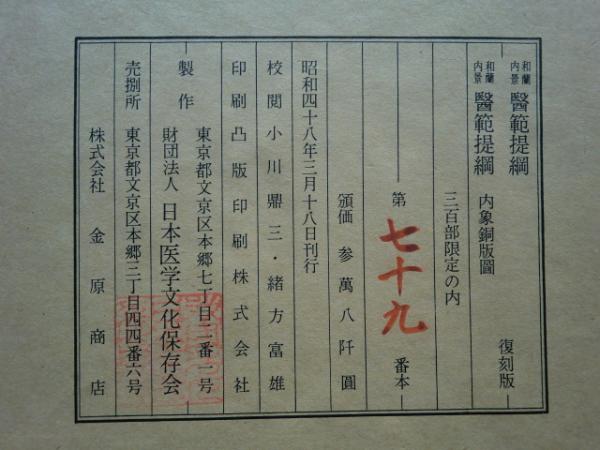 和蘭内景 醫範提綱
和蘭内景 醫範提綱 内象銅版圖 復刻版
三百部限定の内
第 七十九 番本
頒価 参萬八阡圓
昭和四十八年三月十八日刊行
校閲 小川鼎三・緒方富雄
印刷 凸版印刷株式会社
製作 東京都文京区本郷七丁目二番一号
財団法人 日本医学文化保存会
売捌所 東京都文京区本郷三丁目四四番六号
株式会社 金原商店